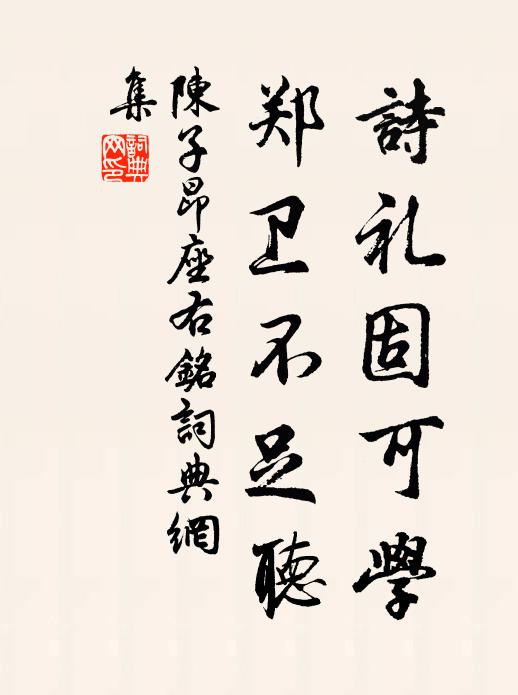 詩礼固可學
郑卫不足聽
陳子昂座右銘詞典網
集
詞典网印